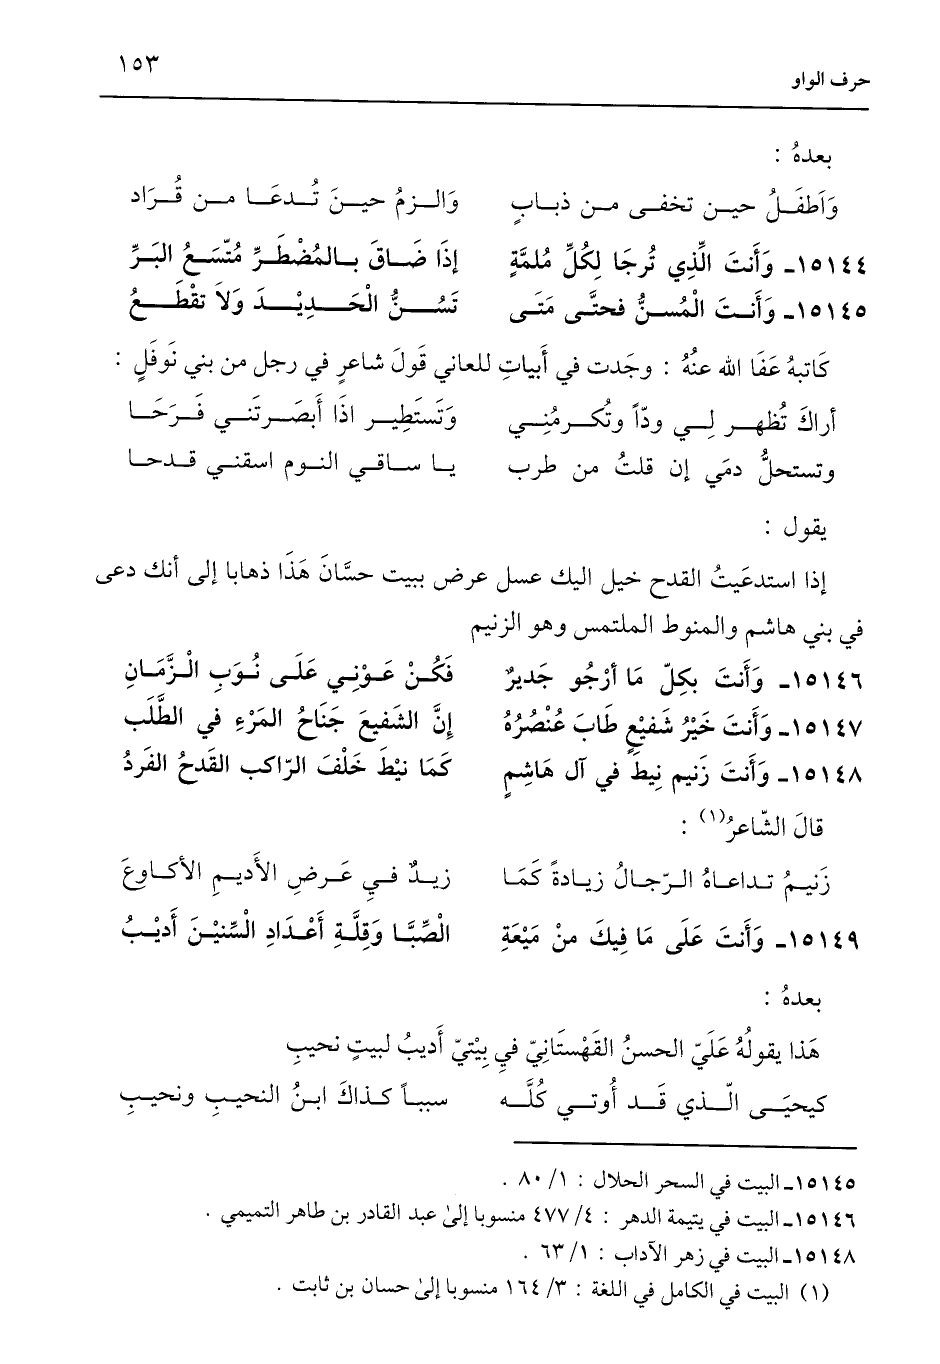 حرف الواو ١٥٣
بعدهُ :
وَاَطفَلُ حين تخفى من ذبابٍ وَالزمُ حينَ تُدعَا من قُرَاد
١٥١٤٤ـ وَأَنتَ الَّذِي تُرجَا لِكُلِّ مُلمَّةٍ إذَا ضَاقَ بالمُضْطَرِّ مُتّسَعُ البَرِّ
١٥١٤٥ـ وَأَنتَ الْمُسنُّ فحتَّى مَتَى تَسُنُّ الْحَدِيْدَ وَلاَ تقْطَعُ
كَاتبهُ عَفَا الله عنْهُ : وجَدت في أَبياتِ للعاني قَولَ شاعرٍ في رجل من بني نَوفَلٍ :
أراكَ تُظهر لِي ودّاً وتُكرمُنِي وَتَستَطِير اذَا أَبصَرتَني فَرَحَا
وتستحلُّ دمَي إن قلتُ من طرب يا ساقي النوم اسقني قدحا
يقول :
إذا استدعَيتُ القدح خيل اليك عسل عرض ببيت حسَّانَ هَذَا ذهابا إلى أنك دعى
في بني هاشم والمنوط الملتمس وهو الزنيم
١٥١٤٦ـ وَأَنتَ بكِلّ مَا أرْجُو جَديرٌ فَكُنْ عَوْنِي عَلَى نُوَبِ الْزَّمَانِ
١٥١٤٧ـ وَأَنتَ خَيْرُ شَفيْعٍ طَابَ عُنْصُرُهُ إِنَّ الشَفيعَ جَنَاحُ المَرْءِ في الطَّلَب
١٥١٤٨ـ وَأَنتَ زَنيم نِيطَ في آل هَاشِمٍ كمَا نيْطَ خَلْفَ الرّاكب القَدحُ الفَردُ
قالَ الشّاعرُ(١) :
زَنيمُ تداعاهُ الرّجالُ زيادةً كمَا زيدٌ في عَرضِ الأَديم الأكاوعَ
١٥١٤٩ـ وَأَنتَ عَلَى مَا فِيكَ منْ مَيْعَةِ الْصِّبَّا وَقِلَّةِ أَعْدَادِ الْسِّنيْنَ أَديْبُ
بعدهُ :
هَذا يقولُهُ عَلَيّ الحسنُ القَهْستَانِيّ فيِ بِيْتيّ أَديبُ لبيتٍ نحيبِ
كيحيَى الّذي قد أُوتي كُلَّه سبباً كذاكَ ابنُ النحيبِ ونحيبِ
١٥١٤٥ـ البيت في السحر الحلال : ١/ ٨٠ .
١٥١٤٦ـ البيت في يتيمة الدهر : ٤/ ٤٧٧ منسوبا إلى عبد القادر بن طاهر التميمي .
١٥١٤٨ـ البيت في زهر الآداب : ١/ ٦٣ .
(١) البيت في الكامل في اللغة : ٣/ ١٦٤ منسوبا إلى حسان بن ثابت .